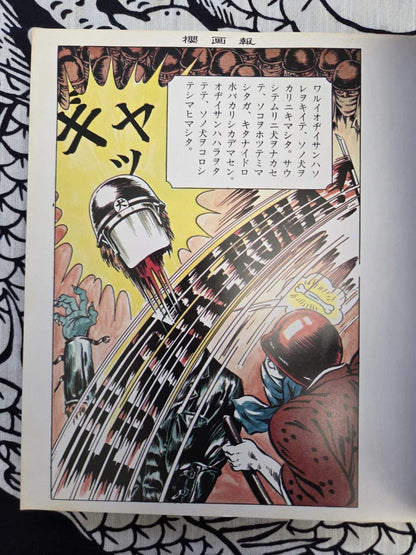 櫻画報
ワルイオヂイサンハソ
レヲキイテ、ソノ犬ヲ
カリニキマシタ。サウ
シテムリニ犬ヲナカセ
テ、ソコヲホツテミマ
シタガ、キタナイドロ
水バカリシカデマセン。
オヂイサンハハラヲタ
テテ、ソノ犬ヲコロシ
テシマヒマシタ。
ギャッ